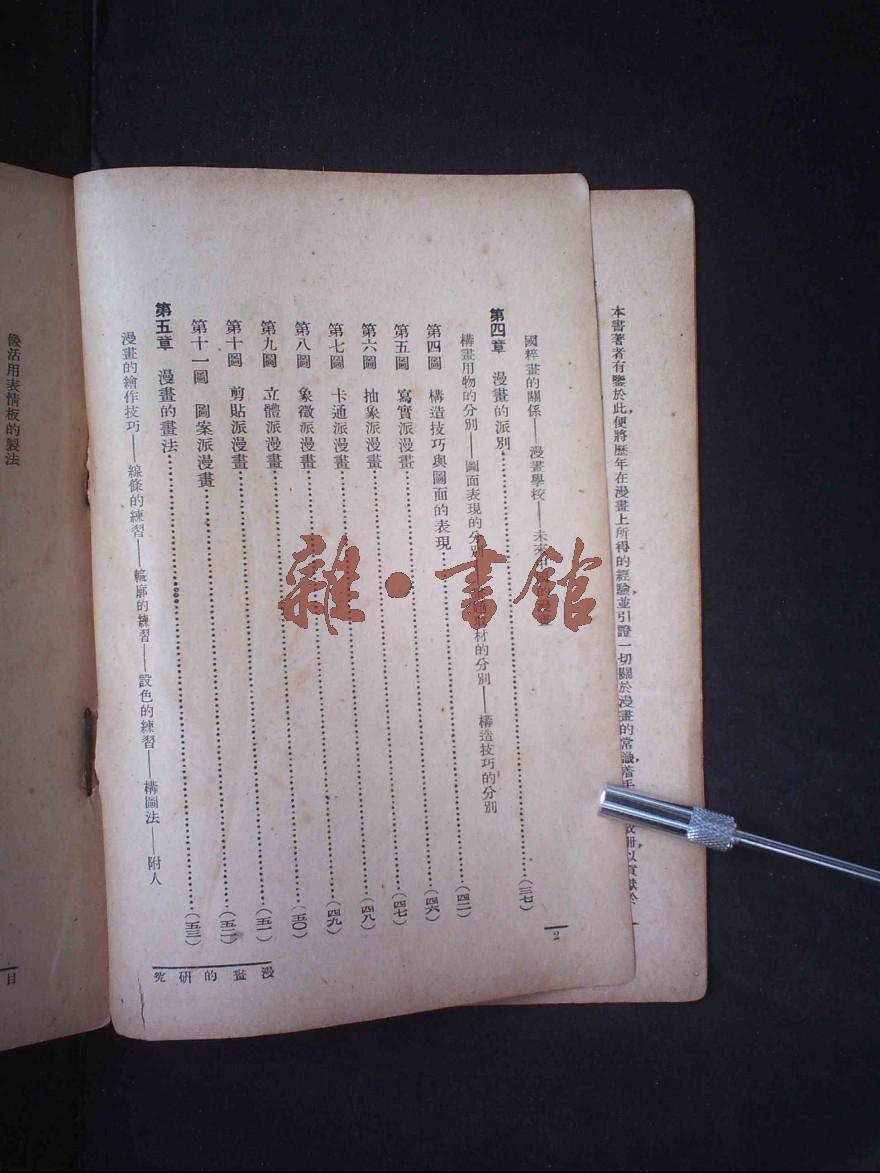 本書著者有鑒於此，便將歷年在漫畫上所得的經驗，並引證一切關於漫畫的常識，著手 冊，以貢獻於
國粹畫的關係——漫畫學校——未來
第四章 漫畫的派別……(三七)
構畫用物的分別——圖面表現的分別 取材的分別——構造技巧的分別
第四圖 構造技巧與圖面的表現……(四二)
第五圖 寫實派漫畫……(四六)
第六圖 抽象派漫畫……(四七)
第七圖 卡通派漫畫……(四八)
第八圖 象徵派漫畫……(四九)
第九圖 立體派漫畫……(五〇)
第十圖 剪貼派漫畫……(五一)
第十一圖 圖案派漫畫……(五二)
第五章 漫畫的畫法……(五三)
漫畫的繪作技巧——線條的練習——輪廓的練習——設色的練習——構圖法——附人
漫畫的研究
2
像活用表情板的製法
目
雜·書館